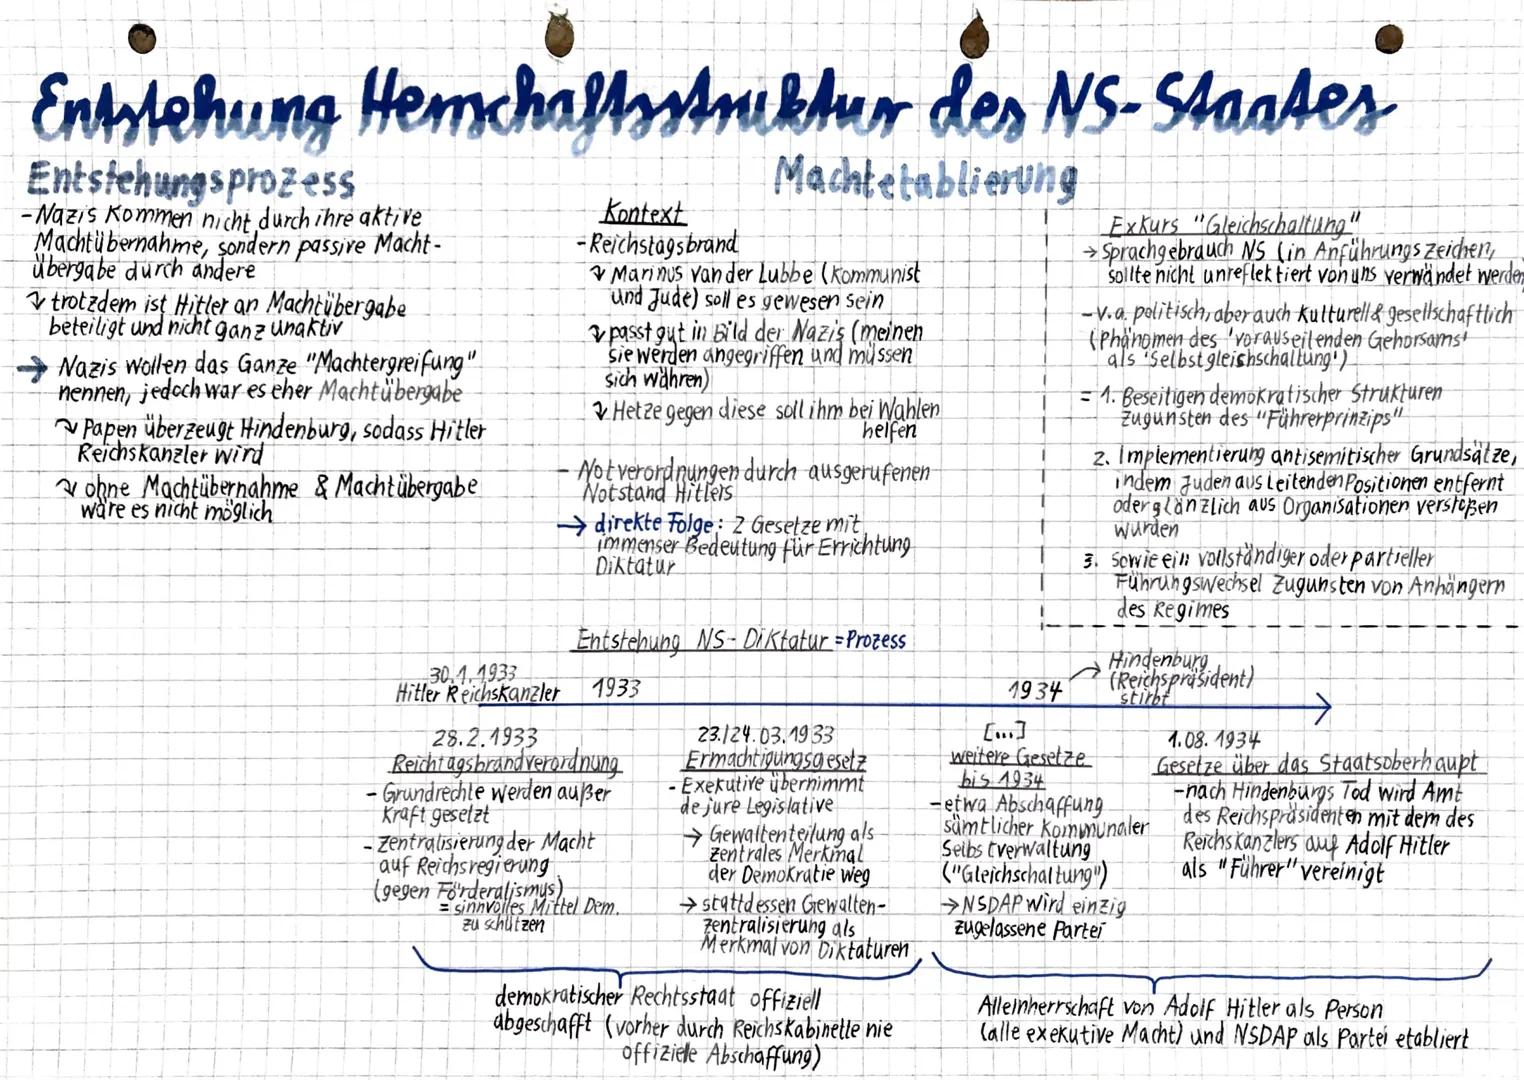 Entstehung Herrschaftsstruktur des NS-Staates
Entstehungsprozess
-Nazis kommen nicht durch ihre aktive
Machtübernahme, sondern passive Macht-
übergabe durch andere
↴ trotzdem ist Hitler an Machtübergabe
beteiligt und nicht ganz unaktiv
→ Nazis wollen das Ganze "Machtergreifung"
nennen, jedoch war es eher Machtübergabe
↴ Papen überzeugt Hindenburg, sodass Hitler
Reichskanzler wird
↴ ohne Machtübernahme & Machtübergabe
wäre es nicht möglich
Machtetablierung
Kontext
-Reichstagsbrand
↴ Marinus van der Lubbe (Kommunist
und Jude) soll es gewesen sein
↴ passt gut in Bild der Nazis (meinen
sie werden angegriffen und müssen
sich währen)
↴ Hetze gegen diese soll ihm bei Wahlen
helfen
- Notverordnungen durch ausgerufenen
Notstand Hitlers
→ direkte Folge: 2 Gesetze mit
immenser Bedeutung für Errichtung
Diktatur
Exkurs "Gleichschaltung"
→ Sprachgebrauch NS (in Anführungszeichen,
sollte nicht unreflektiert von uns verwändet werden)
-v.a. politisch, aber auch kulturell & gesellschaftlich
(Phänomen des 'vorauseilenden Gehorsams'
als 'Selbstgleishschaltung')
= 1. Beseitigen demokratischer Strukturen
zugunsten des "Führerprinzips"
2. Implementierung antisemitischer Grundsätze,
indem Juden aus leitenden Positionen entfernt
oder glänzlich aus Organisationen verstoßen
wurden
3. sowie ein vollständiger oder partieller
Führungswechsel zugunsten von Anhängern
des Regimes
Entstehung NS-Diktatur = Prozess
30.1.1933
Hitler Reichskanzler
1933
1934
Hindenburg
(Reichspräsident)
stirbt
28.2.1933
Reichtagsbrandverordnung
- Grundrechte werden außer
Kraft gesetzt
- Zentralisierung der Macht
auf Reichsregierung
(gegen Förderalismus)
= sinnvolles Mittel Dem.
zu schützen
23./24.03.1933
Ermächtigungsgesetz
- Exekutive übernimmt
de jure Legislative
→ Gewaltenteilung als
zentrales Merkmal
der Demokratie weg
→ stattdessen Gewalten-
zentralisierung als
Merkmal von Diktaturen
[...]
weitere Gesetze
bis 1934
-etwa Abschaffung
sämtlicher kommunaler
Selbstverwaltung
("Gleichschaltung")
→ NSDAP wird einzig
zugelassene Partei
1.08.1934
Gesetze über das Staatsoberhaupt
-nach Hindenburgs Tod wird Amt
des Reichspräsidenten mit dem des
Reichskanzlers auf Adolf Hitler
als "Führer" vereinigt
demokratischer Rechtsstaat offiziell
abgeschafft (vorher durch Reichskabinette nie
offizielle Abschaffung)
Alleinherrschaft von Adolf Hitler als Person
(alle exekutive Macht) und NSDAP als Partei etabliert